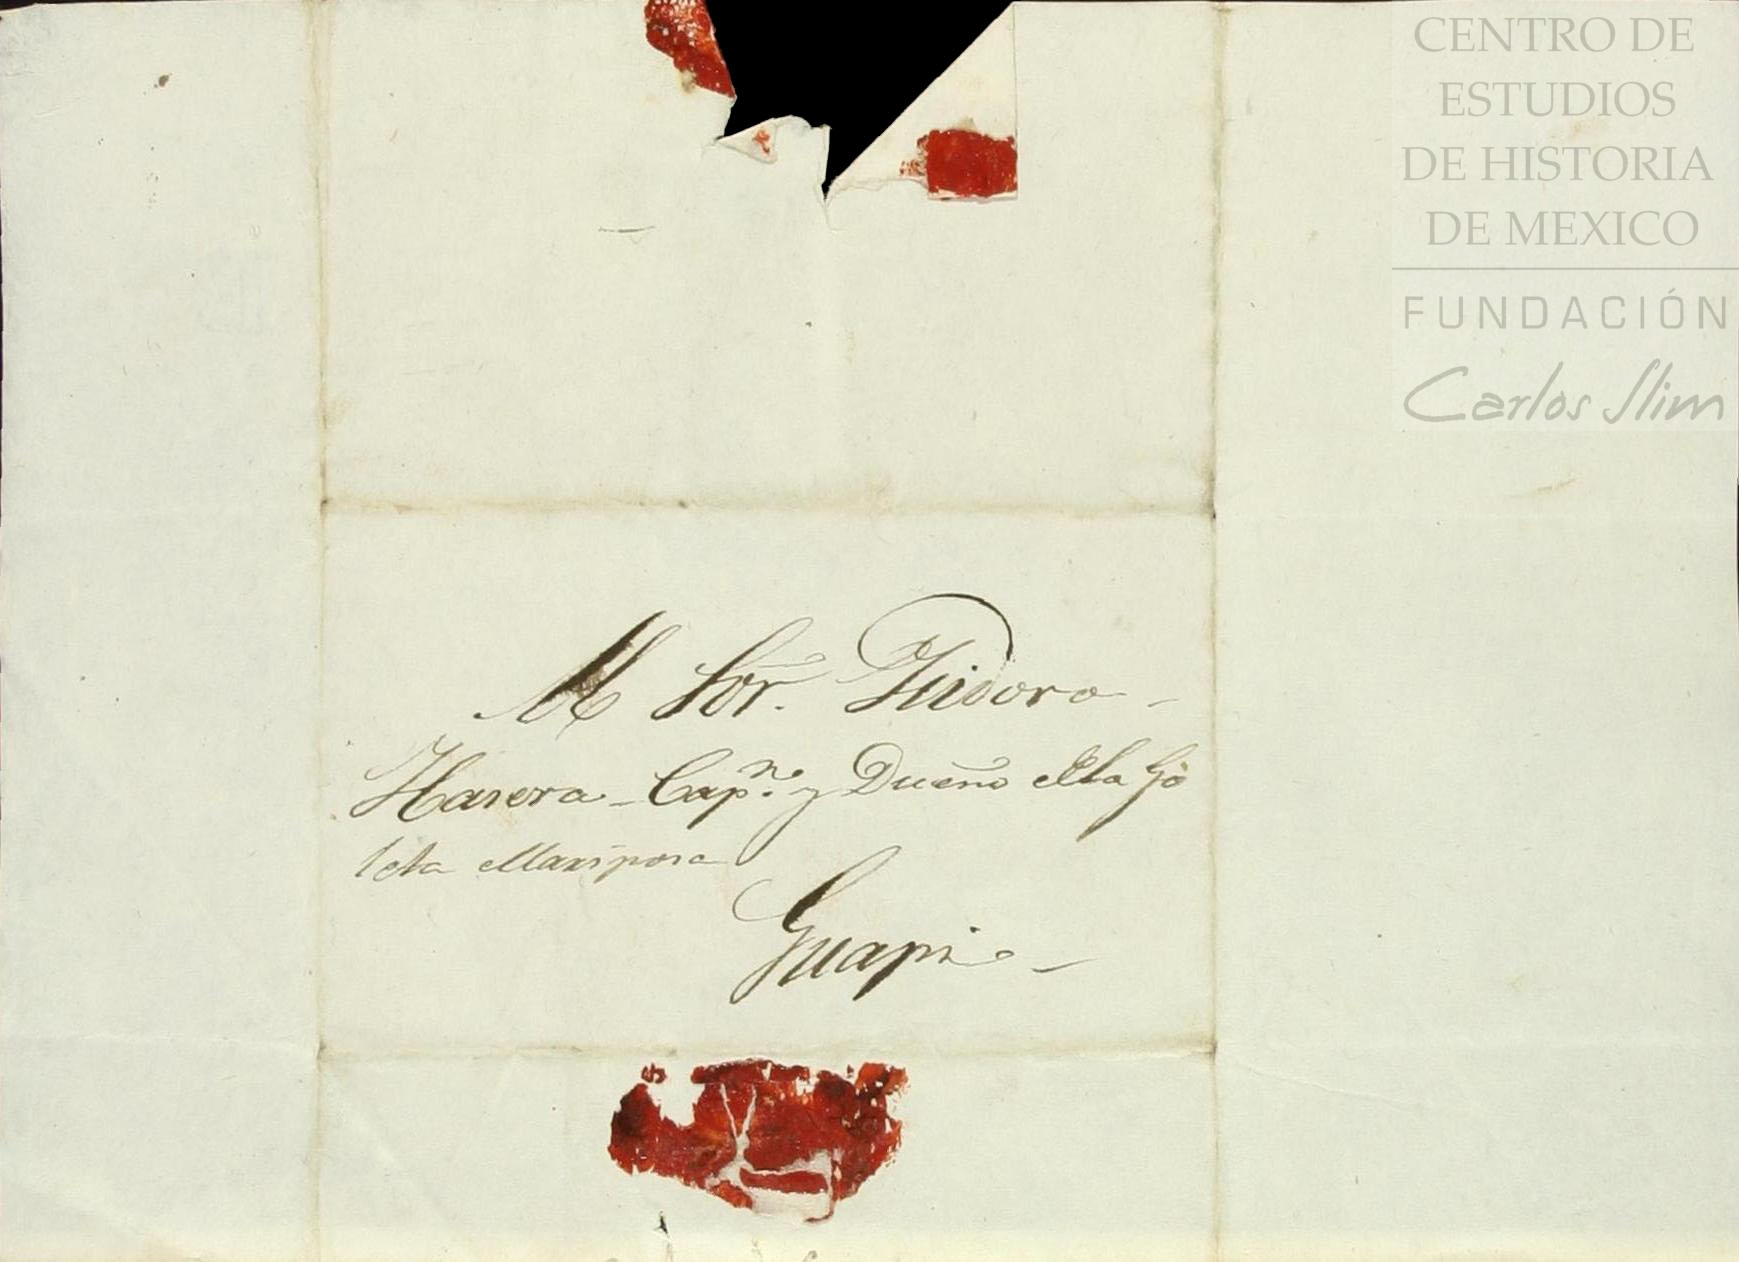 CENTRO DE
ESTUDIOS
DE HISTORIA
DE MEXICO
FUNDACIÓN
Carlos Slim
Al Sōr. Isidoro
Capn. y Dueño dela Go
leta Mariposa
Guapi